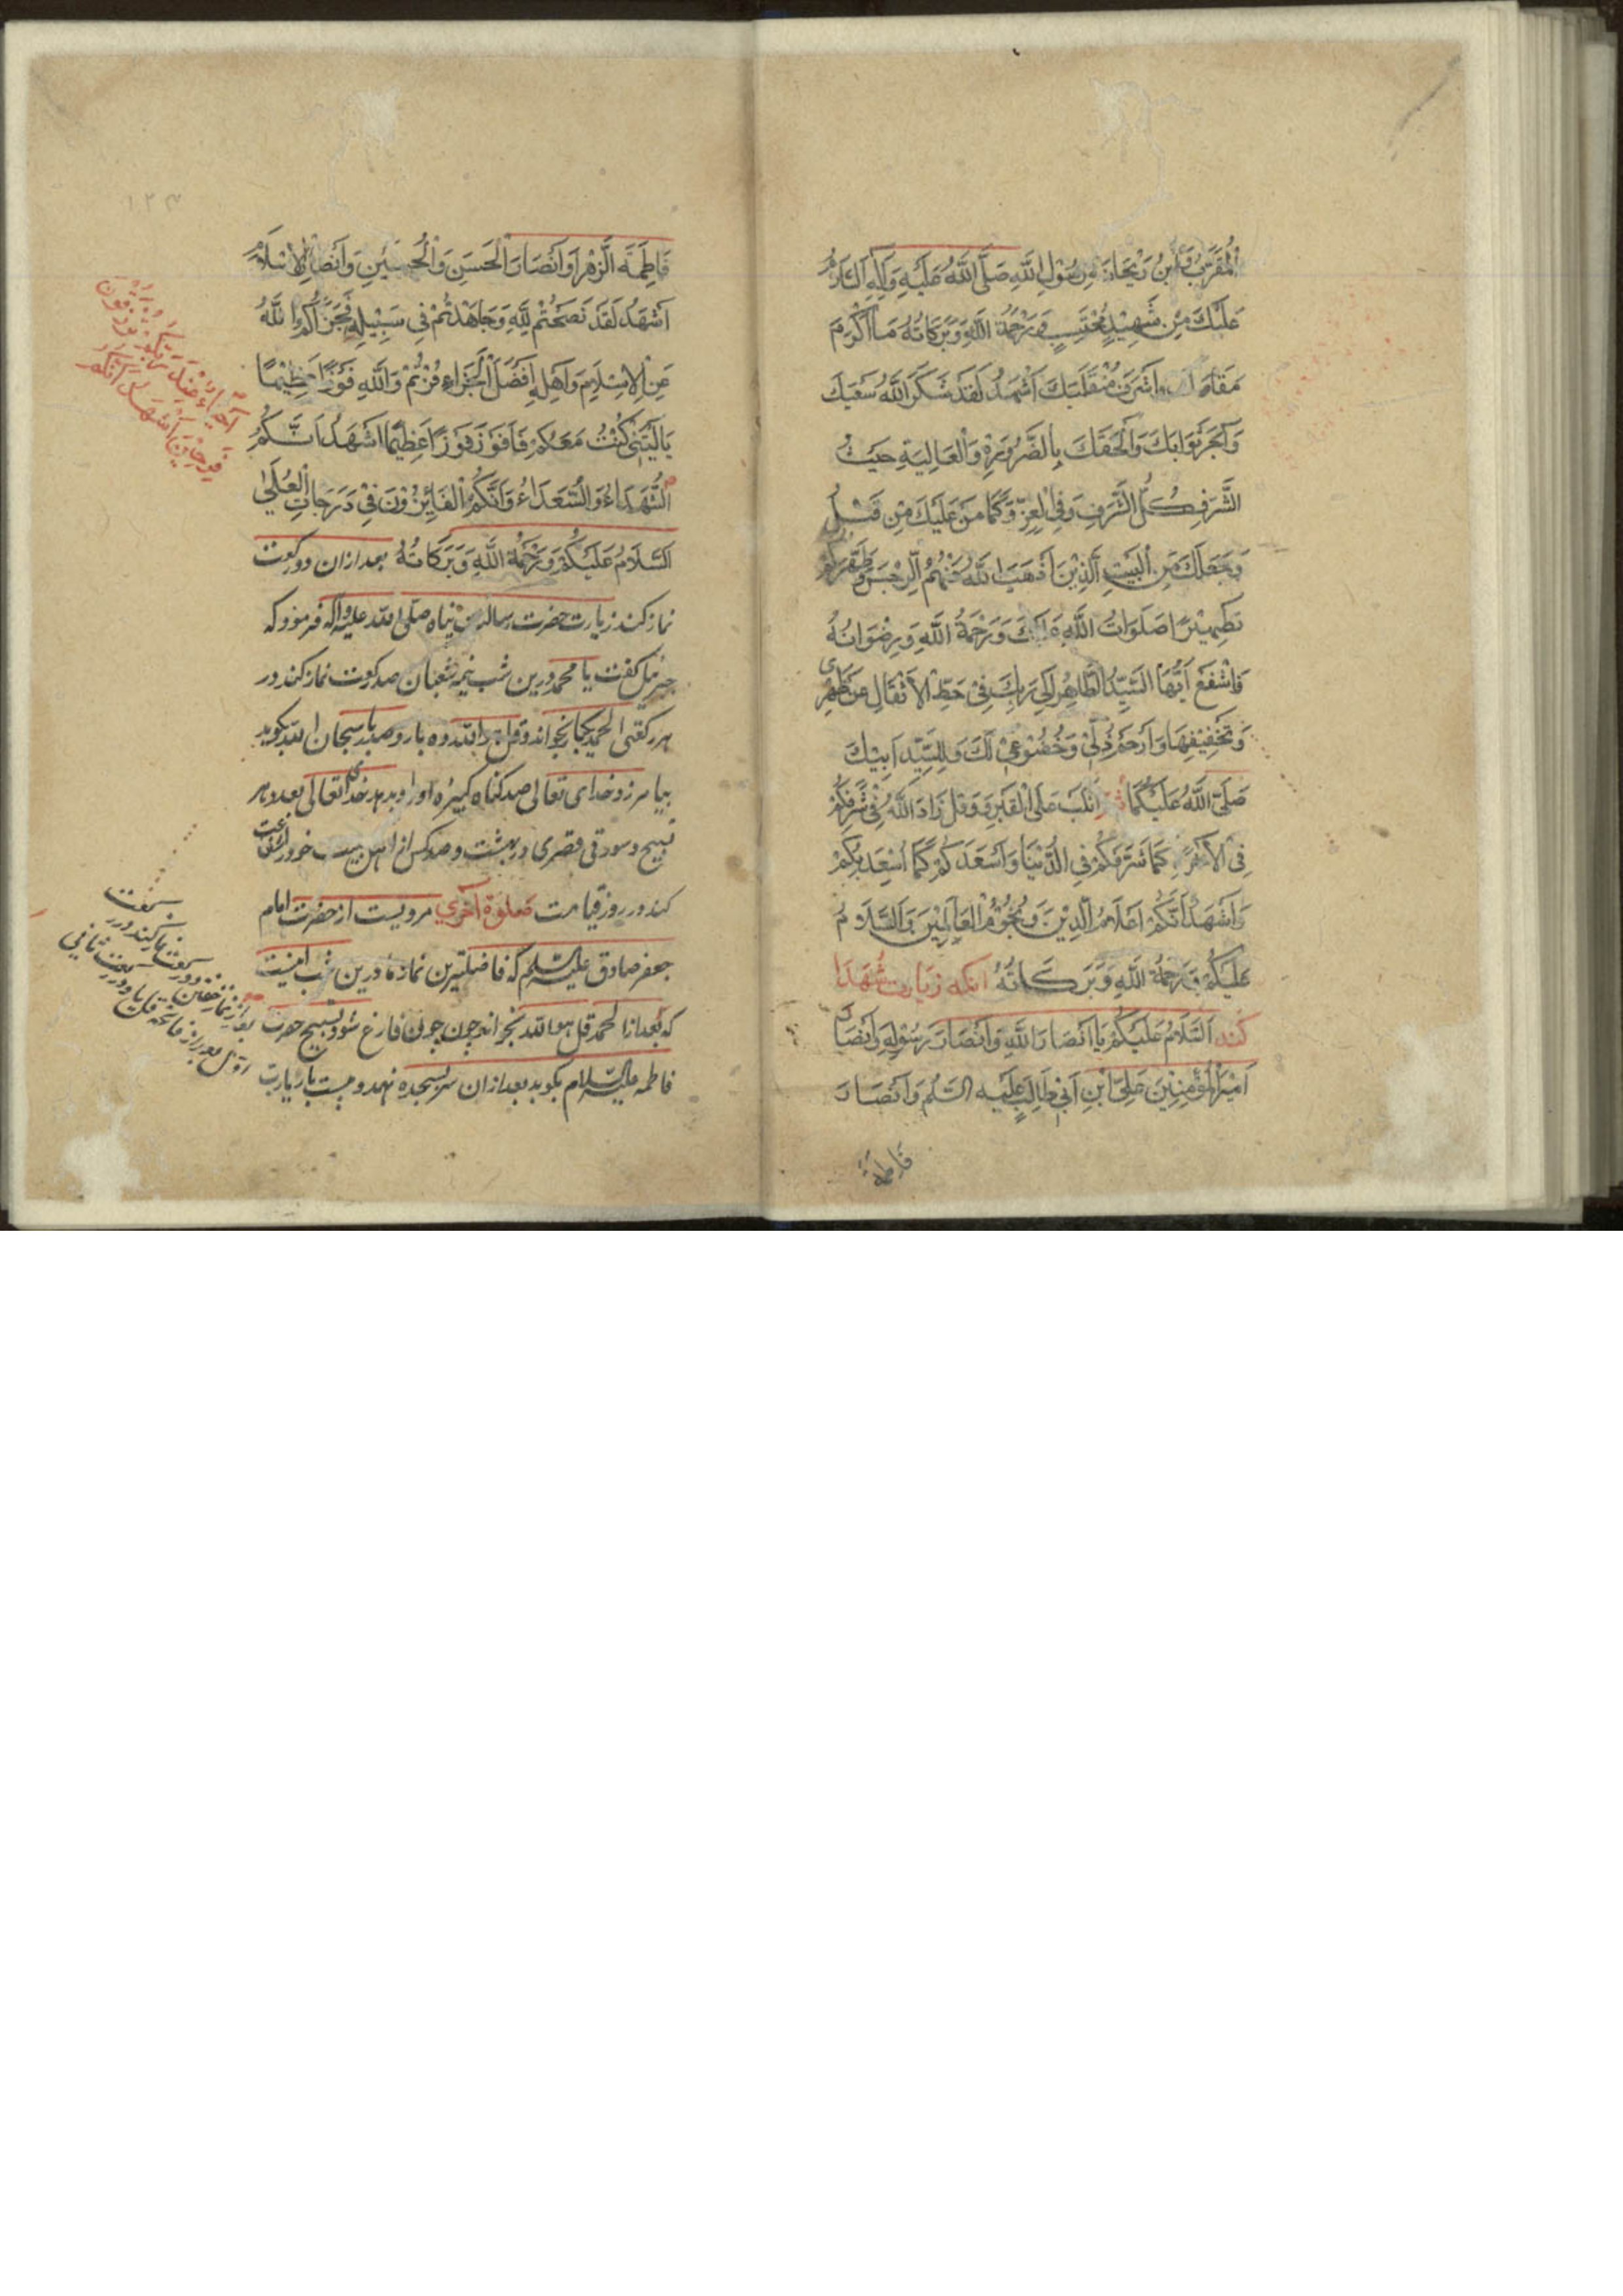 الْمُقَرَّبُ وَابْنُ رَيْحَانَةِ رَسُوْلِ اللَّهِ صَلَّى اللَّهُ عَلَيْهِ وَآلِهِ السَّلَامُ
عَلَيْكَ مِنْ شَهِيْدٍ مُحْتَسِبٍ وَرَحْمَةُ اللَّهِ وَبَرَكَاتُهُ مَا أَكْرَمَ
مَقَامَكَ وَاَشْرَفَ مُنْقَلَبَكَ اَشْهَدُ لَقَدْ شَكَرَ اللَّهُ سَعْيَكَ
وَاَجْزَلَ ثَوَابَكَ وَاَلْحَقَكَ بِالذِّرْوَةِ وَالْعَالِيَةِ حَيْثُ
الشَّرَفِ كُلُّ الشَّرَفِ وَفِي الْعِزِّ وَكَمَا مَنَّ عَلَيْكَ مِنْ قَبْلُ
وَجَعَلَكَ مِنَ الْبَيْتِ الَّذِيْنَ اَذْهَبَ اللَّهُ عَنْهُمُ الرِّجْسَ وَطَهَّرَهُمْ
تَطْهِيْرًا صَلَوَاتُ اللَّهِ عَلَيْكَ وَرَحْمَةُ اللَّهِ وَرِضْوَانُهُ
فَاشْفَعْ اَيُّهَا السَّيِّدُ الطَّاهِرُ اِلَى رَبِّكَ فِيْ حَطِّ الْاَثْقَالِ عَنْ ظَهْرِيْ
وَتَخْفِيْفِهَا وَارْحَمْ ذُلِّيْ وَخُضُوْعِيْ لَكَ وَلِلسَّيِّدِ اَبِيْكَ
صَلَّى اللَّهُ عَلَيْكُمَا ثُمَّ انْكَبَّ عَلَى الْقَبْرِ وَقُلْ زَادَ اللَّهُ فِيْ شَرَفِكُمْ
فِي الْاٰخِرَةِ كَمَا شَرَّفَكُمْ فِي الدُّنْيَا وَاَسْعَدَكُمْ كَمَا اَسْعَدَ بِكُمْ
وَاَشْهَدُ اَنَّكُمْ اَعْلَامُ الدِّيْنِ وَنُجُوْمُ الْعَالَمِيْنَ وَالسَّلَامُ
عَلَيْكُمْ وَرَحْمَةُ اللَّهِ وَبَرَكَاتُهُ انكه زيارت شهدا
كند اَلسَّلَامُ عَلَيْكُمْ يَا اَنْصَارَ اللَّهِ وَاَنْصَارَ رَسُوْلِهِ وَاَنْصَارَ
اَمِيْرِ الْمُؤْمِنِيْنَ عَلِيِّ ابْنِ اَبِيْ طَالِبٍ عَلَيْهِ السَّلَمُ وَاَنْصَارَ
فَاطِمَةَ
١٢٣
فَاطِمَةَ الزَّهْرَا وَاَنْصَارَ الْحَسَنِ وَالْحُسَيْنِ وَاَنْصَارَ الْاِسْلَامِ
اَشْهَدُ لَقَدْ نَصَحْتُمْ لِلَّهِ وَجَاهَدْتُمْ فِي سَبِيْلِهِ فَجَزَاكُمُ اللَّهُ
عَنِ الْاِسْلَامِ وَاَهْلِهِ اَفْضَلَ الْجَزَاءِ فُزْتُمْ وَاللَّهِ فَوْزًا عَظِيْمًا
يَا لَيْتَنِيْ كُنْتُ مَعَكُمْ فَاَفُوْزَ فَوْزًا عَظِيْمًا اَشْهَدُ اَنَّكُمْ
الشُّهَدَاءُ وَالسُّعَدَاءُ وَاَنَّكُمُ الْفَائِزُوْنَ فِيْ دَرَجَاتِ الْعُلَى
اَلسَّلَامُ عَلَيْكُمْ وَرَحْمَةُ اللَّهِ وَبَرَكَاتُهُ بعد ازان دو ركعت
نماز كند زيارت حضرت رسالت پناه صلى الله عليه واله فرمود كه
جبرئيل گفت يا محمد درين شب نيمه شعبان صد ركعت نماز كند در
هر ركعتى الحمد يكبار بخواند و قل هو الله ده بار و صد بار سبحان الله بگويد
بيامرزد خداى تعالى صد گناه كبيره او را و بدهد خداى تعالى بعدد هر
تسبيح و سورتى قصرى در بهشت و صد كس از اهل بيت خود را شفاعت
كند در روز قيامت صلوة اخرى مرويست از حضرت امام
جعفر صادق عليه السلم كه فاضلترين نمازها درين شب اينست
كه بعد از الحمد قل هو الله بخواند چون فارغ شود تسبيح حضرت
فاطمه عليه السلام بگويد بعد ازان سر بسجده نهد و بيست بار يا رب
اَحْيَاءٌ عِنْدَ رَبِّكُمْ تُرْزَقُوْنَ
فَرِحِيْنَ اَشْهَدُ اَنَّكُمْ